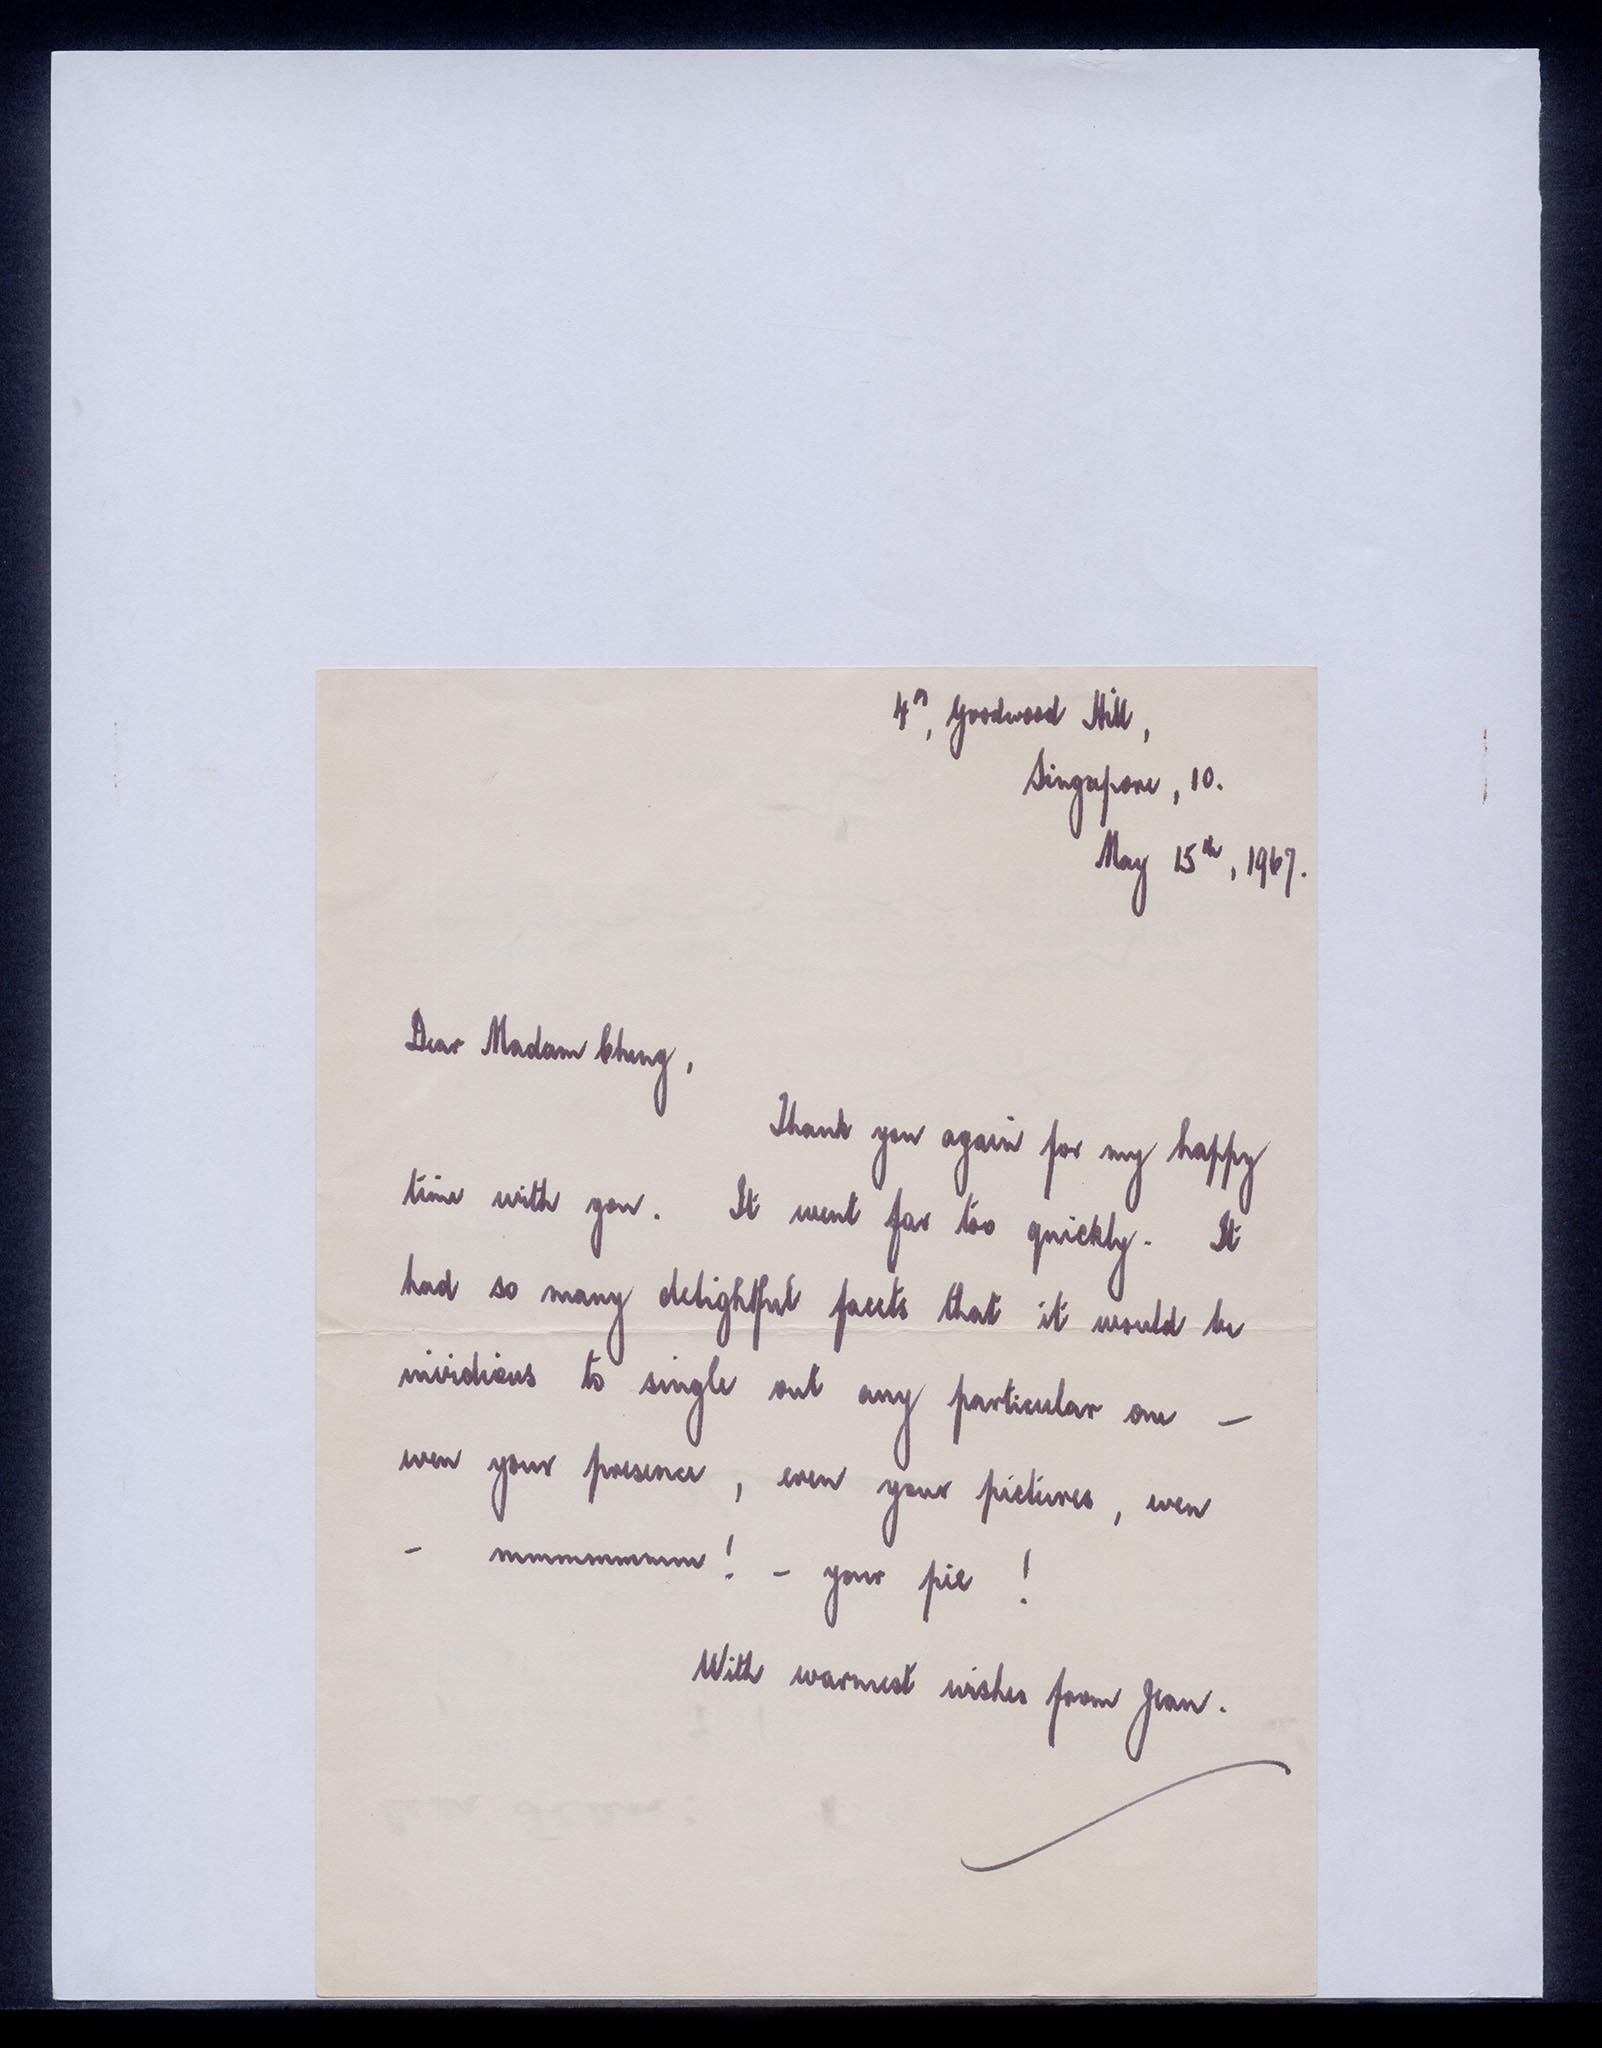 4ᴬ, Goodwood Hill,
Singapore, 10.
May 15th, 1967.
Dear Madam Cheng,
Thank you again for my happy
time with you. It went far too quickly. It
had so many delightful facets that it would be
invidious to single out any particular one —
even your presence, even your pictures, even
- mmmmmmmm! - your pie!
With warmest wishes from Jean.